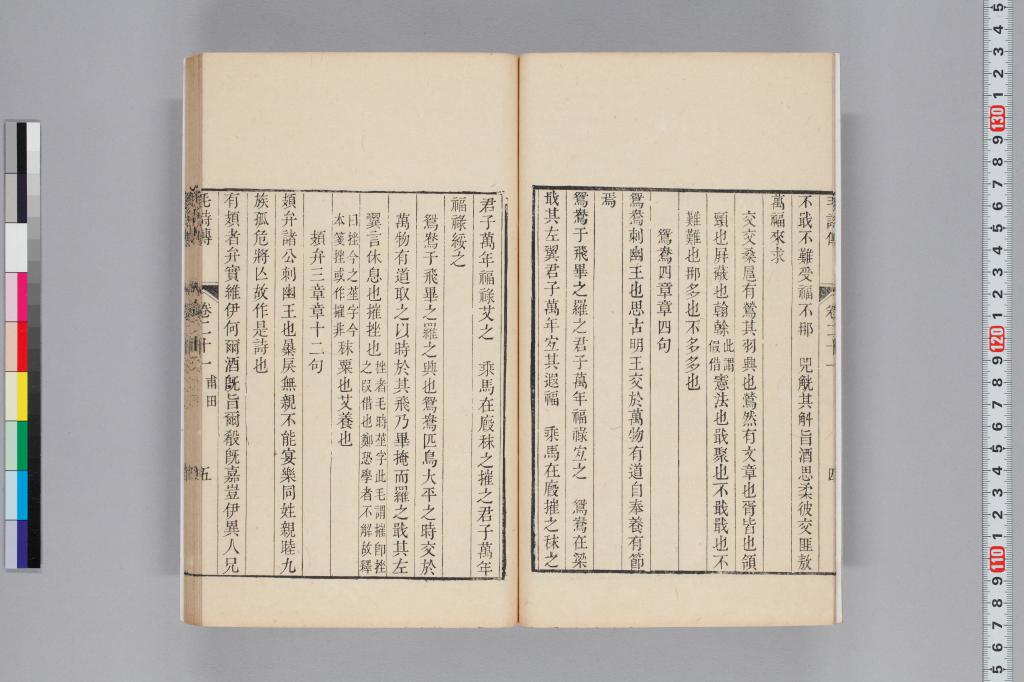 毛詩傳
卷二十一
四
不戢不難受福不那　兕觥其觩旨酒思柔彼交匪敖
萬福來求
交交桑扈有鶯其羽興也鶯然有文章也胥皆也領
頸也屛蔽也翰榦此謂假借憲法也戢聚也不戢戢也不
難難也那多也不多多也
鴛鴦四章章四句
鴛鴦刺幽王也思古明王交於萬物有道自奉養有節
焉
鴛鴦于飛畢之羅之君子萬年福祿宜之　鴛鴦在梁
戢其左翼君子萬年宜其遐福　乘馬在廄摧之秣之
君子萬年福祿艾之　乘馬在廄秣之摧之君子萬年
福祿綏之
鴛鴦于飛畢之羅之興也鴛鴦匹鳥大平之時交於
萬物有道取之以時於其飛乃畢掩而羅之戢其左
翼言休息也摧挫也挫者毛時莝字此毛謂摧卽挫之叚借也鄭恐學者不解故釋
曰挫今之莝字今本箋挫或作摧非秣粟也艾養也
頍弁三章章十二句
頍弁諸公刺幽王也㬥戾無親不能宴樂同姓親睦九
族孤危將亾故作是詩也
有頍者弁實維伊何爾酒旣旨爾殽旣嘉豈伊異人兄
毛詩傳
卷二十一　甫田
五